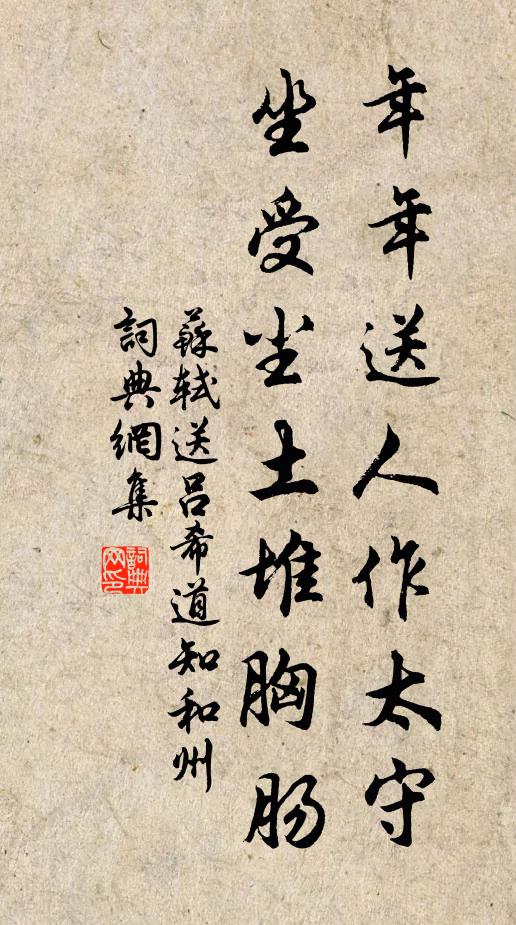 年年送人作太守
坐受尘土堆胸肠
蘇轼送呂希道知和州
詞典網集
詞典網印